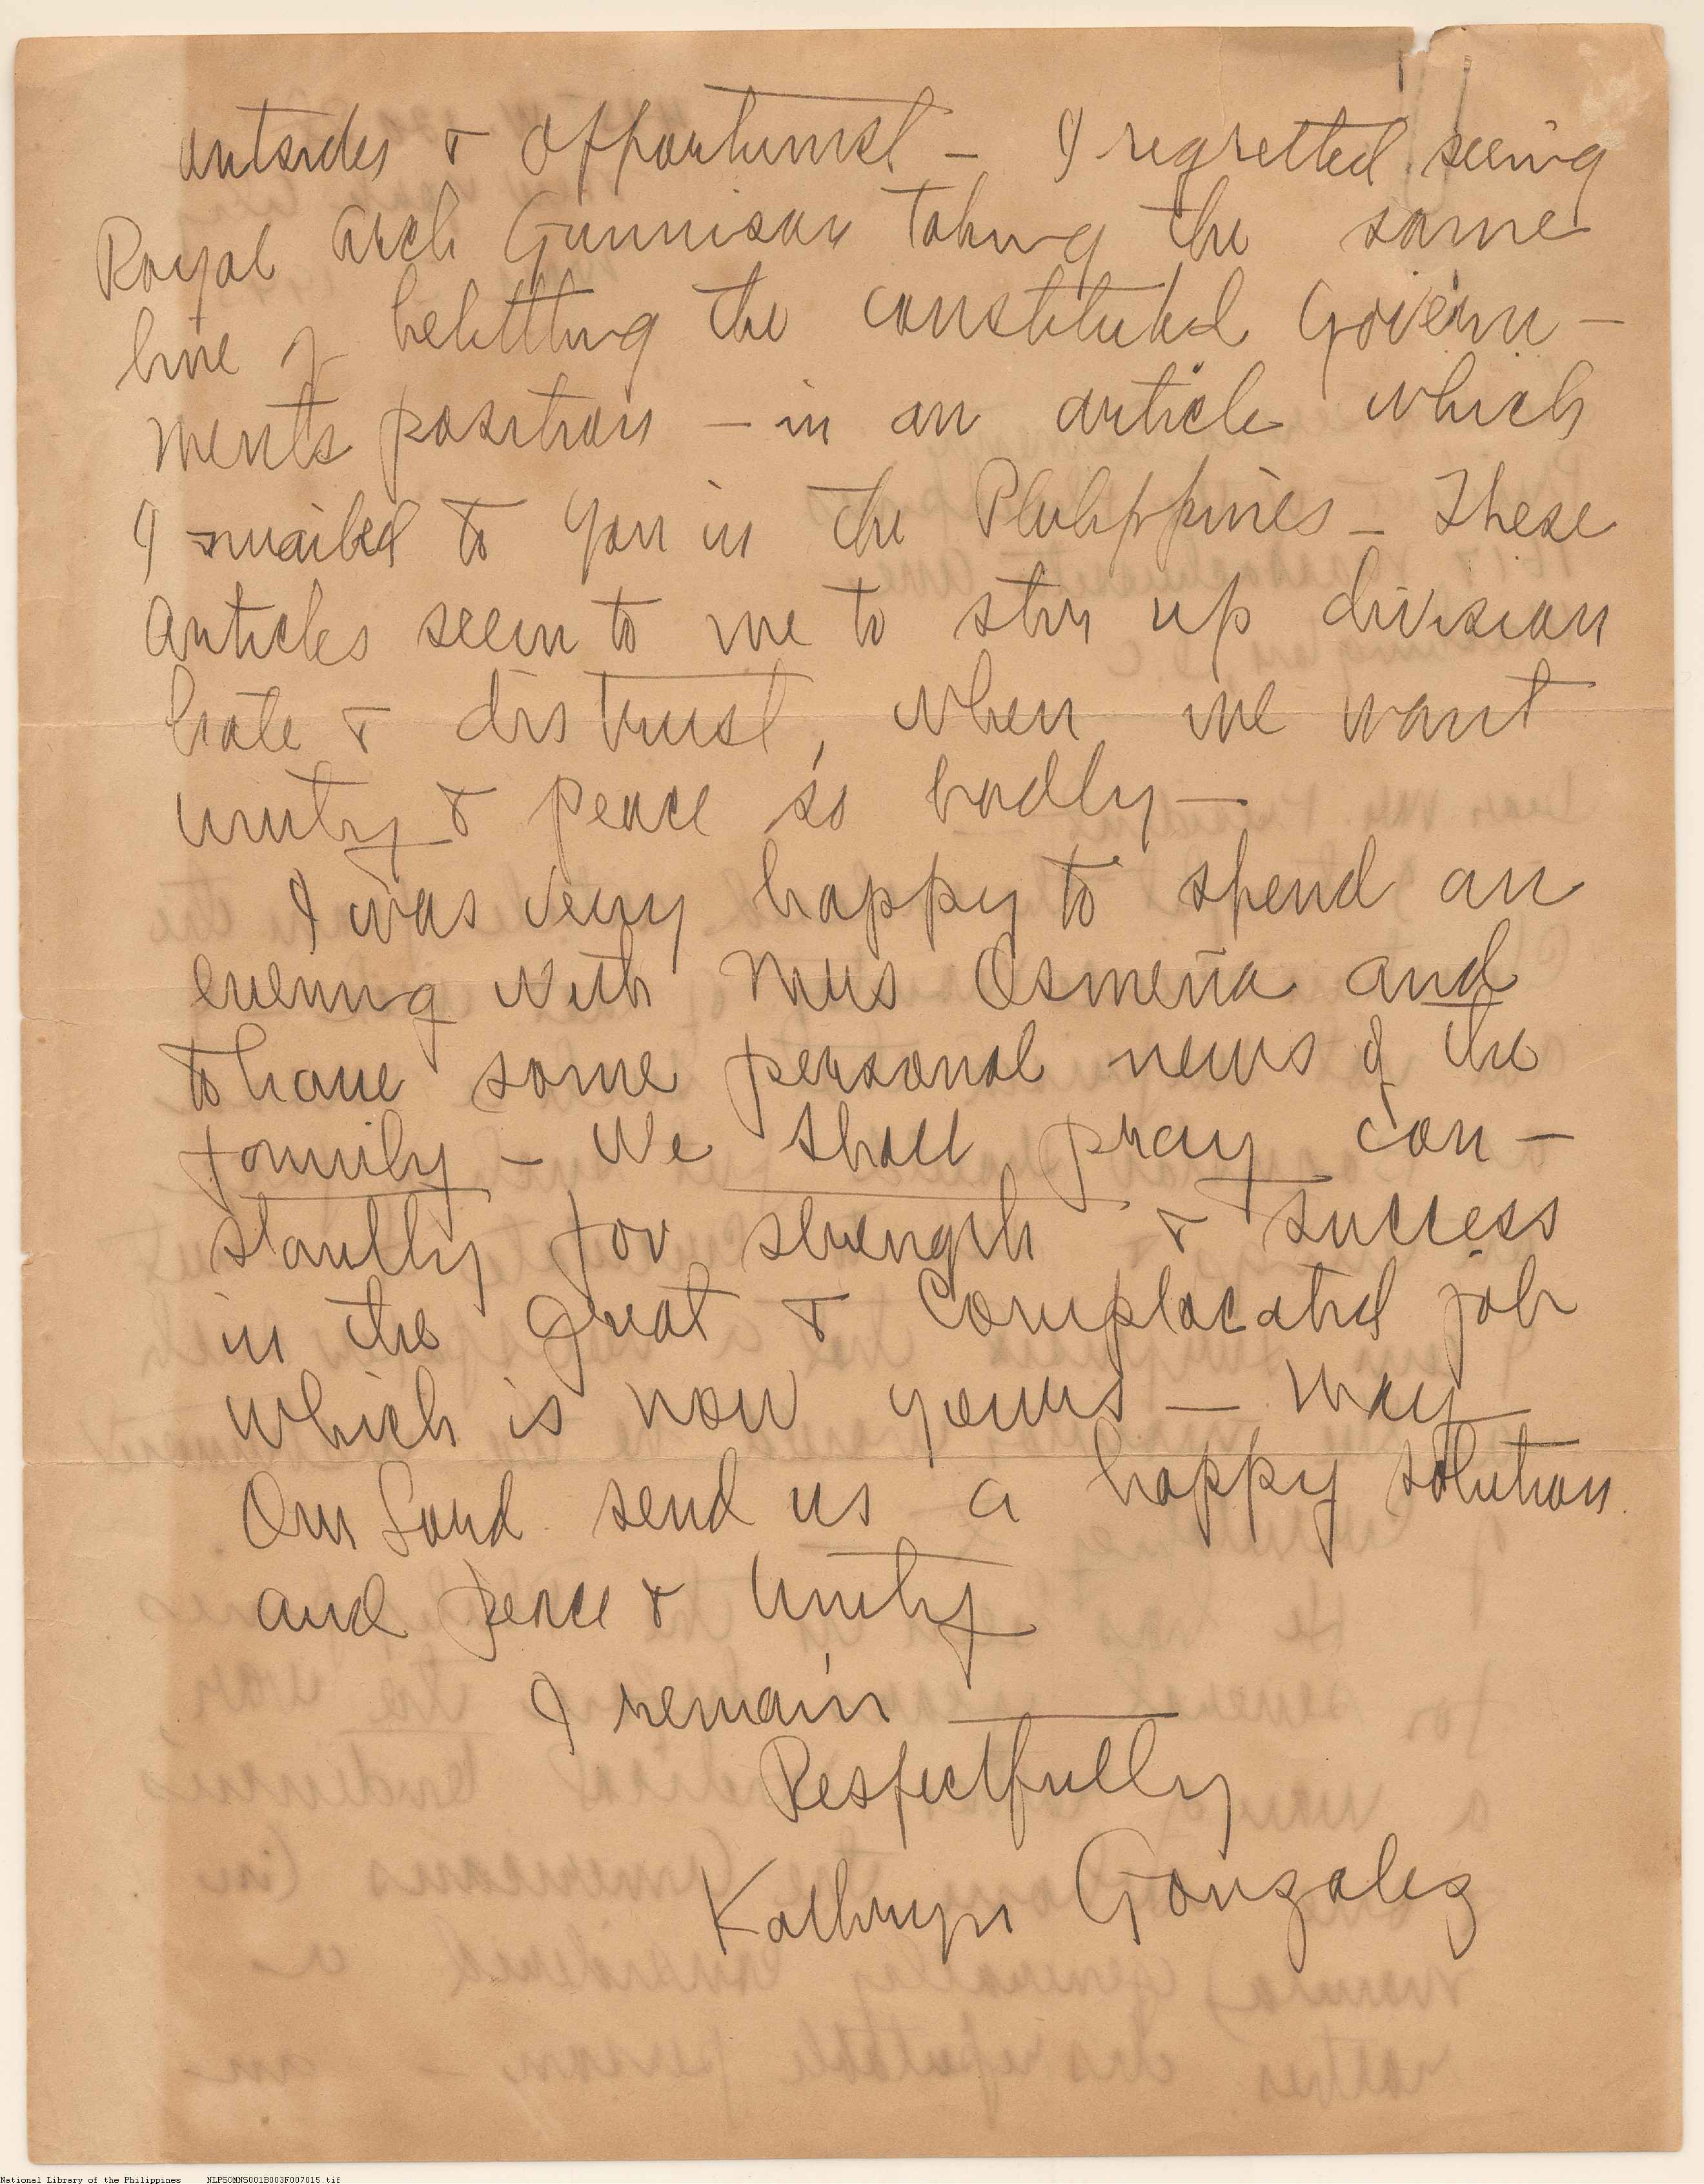 outsider & opportunist – I regretted seeing
Royal Arch Gunnison taking the same
line of belittling the constituted Govern-
ments position – in an article which
I mailed to you in the Philippines – These
articles seem to me to stir up division
hate & distrust, when we want
unity & peace so badly –
I was very happy to spend an
evening with Mrs Osmeña and
to have some personal news of the
family – We shall pray con-
stantly for strength & success
in the great & complacated job
which is now yours – May
Our Lord send us a happy solution
and peace & unity
I remain
Respectfully
Kathryn Gonzalez
National Library of the Philippines NLPSOMNS001B003F007015.tif